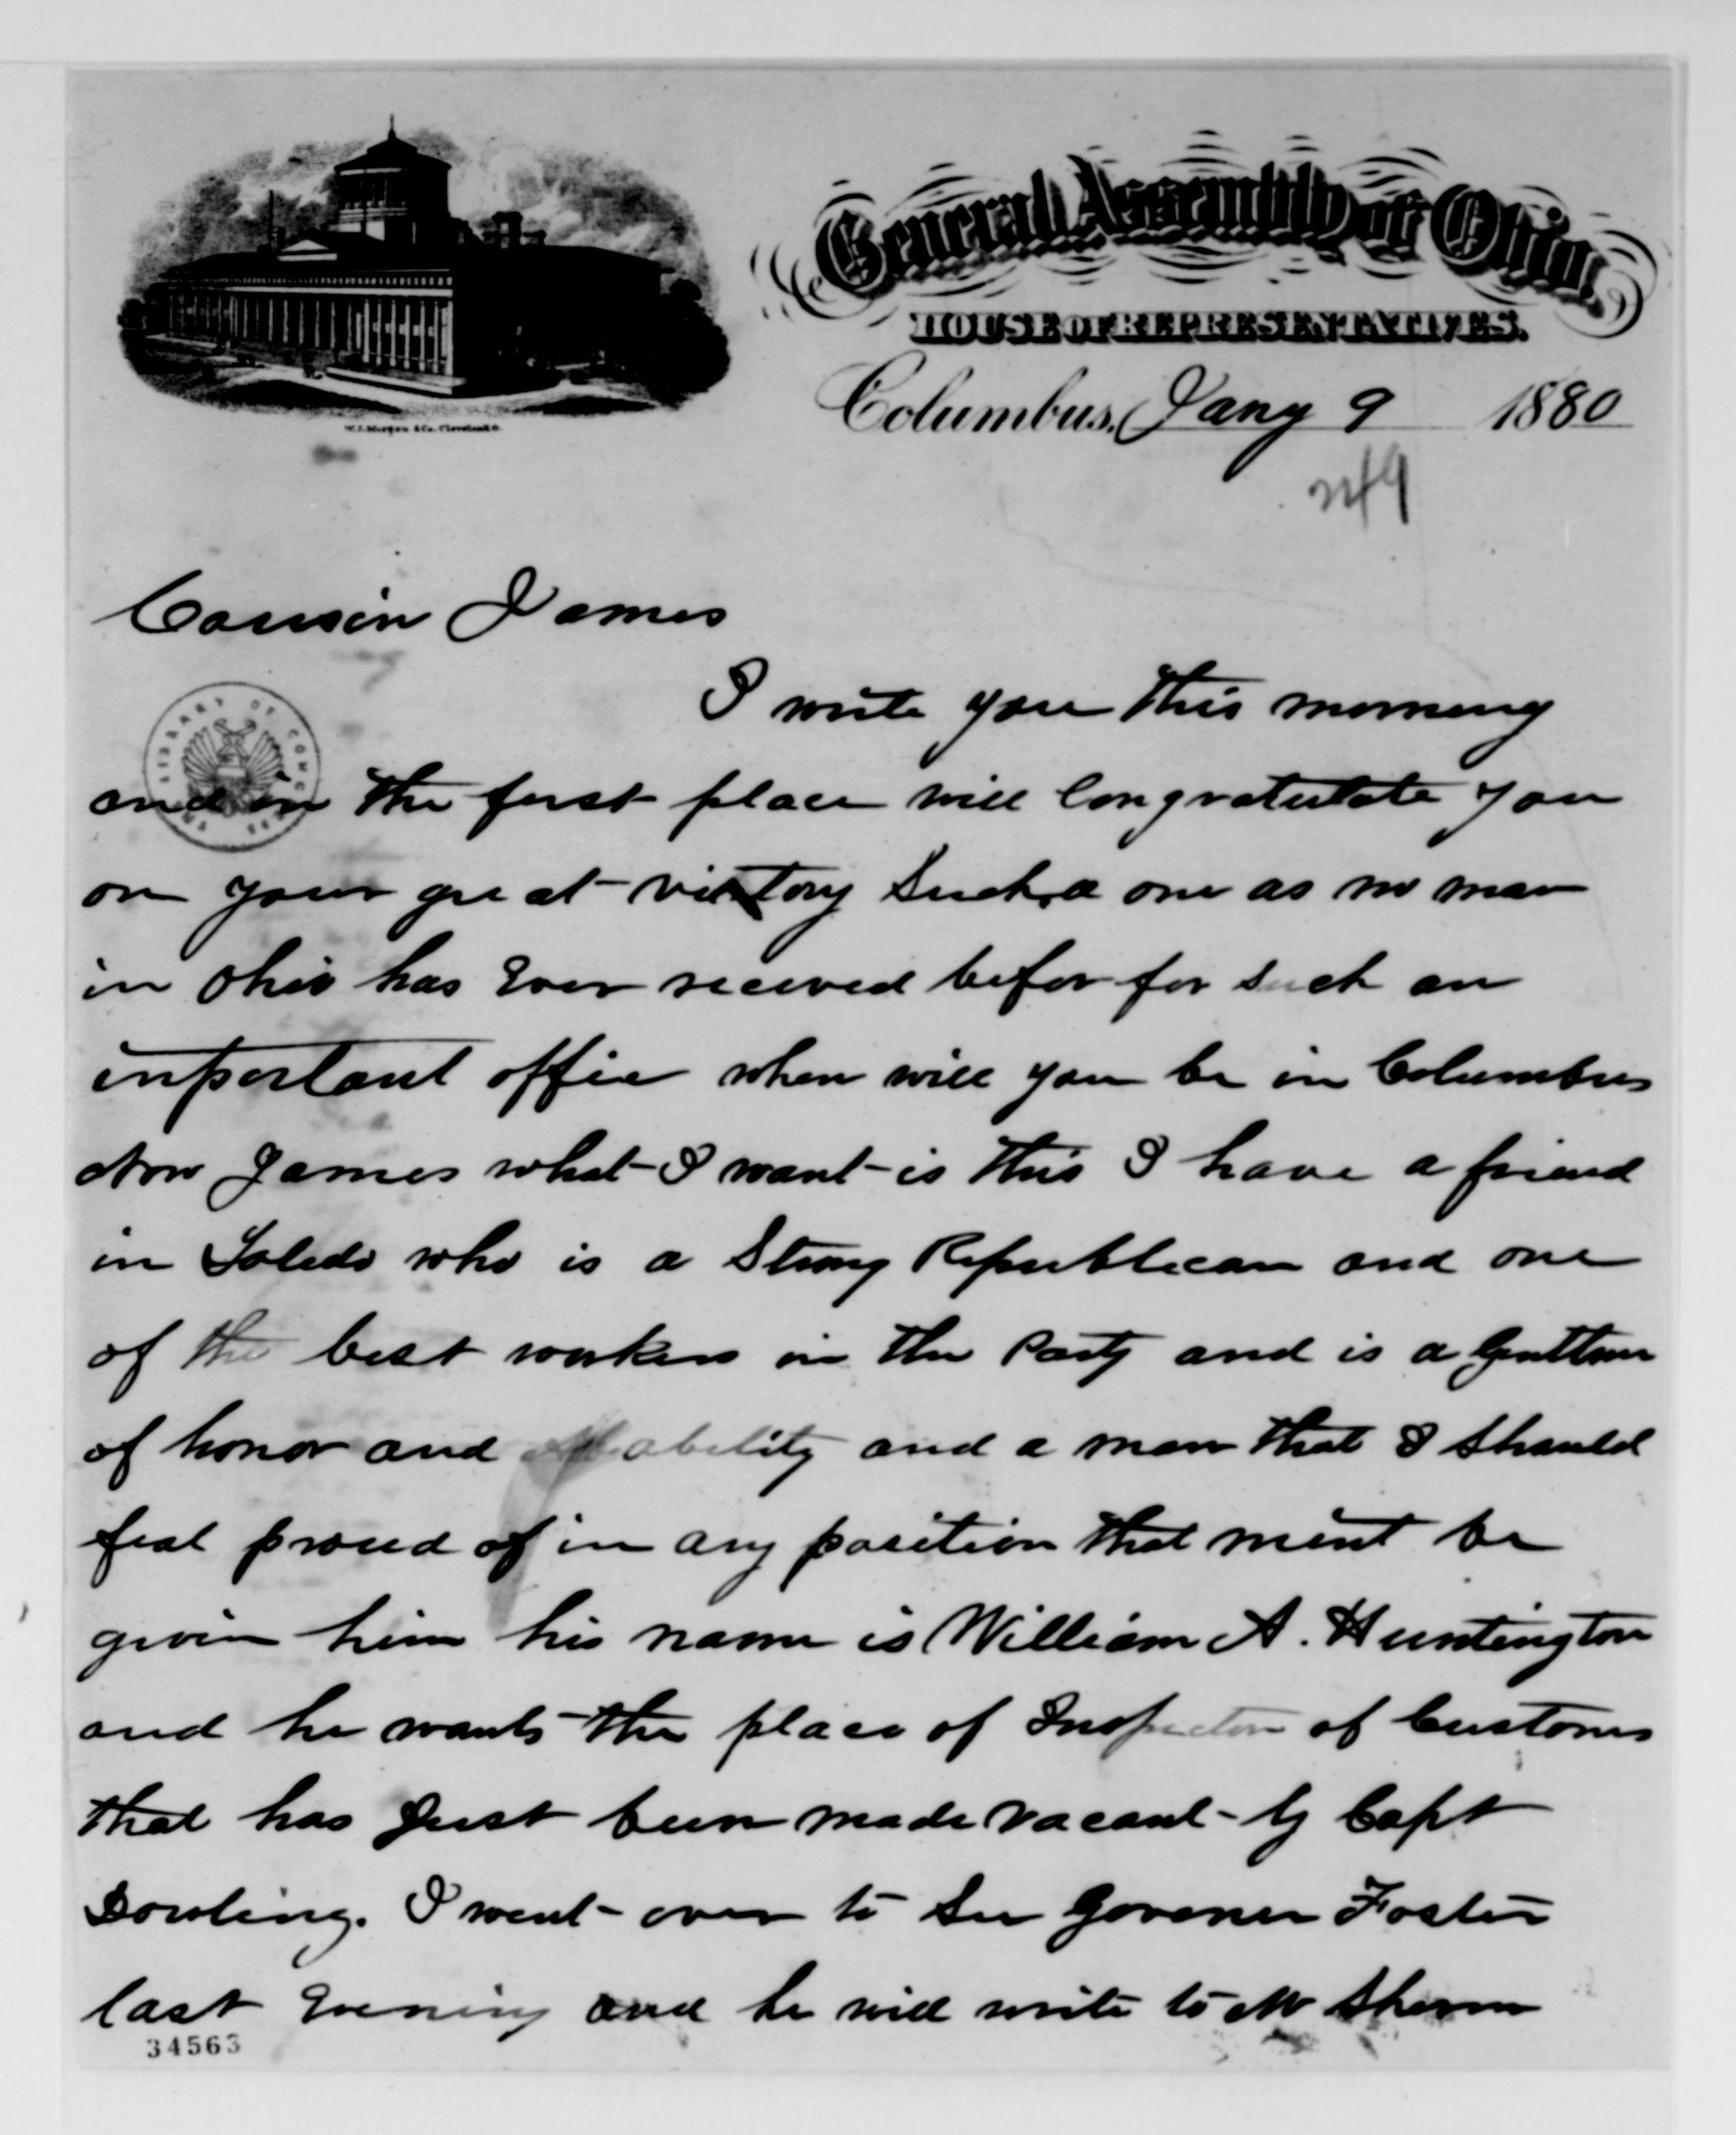 General Assembly of Ohio,
HOUSE OF REPRESENTATIVES.
Columbus, Jany 9 1880
W.J. Morgan & Co. Cleveland O.
Cousin James
LIBRARY OF CONGRESS
I write you this morning
and in the first place will Congratutate you
on your great victory Such a one as no man
in Ohio has Ever receved befor for such an
inportant offic when will you be in Columbus
Now James what I want is this I have a friend
in Toledo who is a Strong Republican and one
of the best workers in the Party and is a Gentlman
of honor and ability and a man that I should
feal proud of in any position that mint be
given him his name is William A. Huntington
and he wants the place of Inspector of Customs
that has Just been made vacant by Capt
Dowling. I went over to See Govener Foster
last Evening and he will write to Mr Sherm
34563